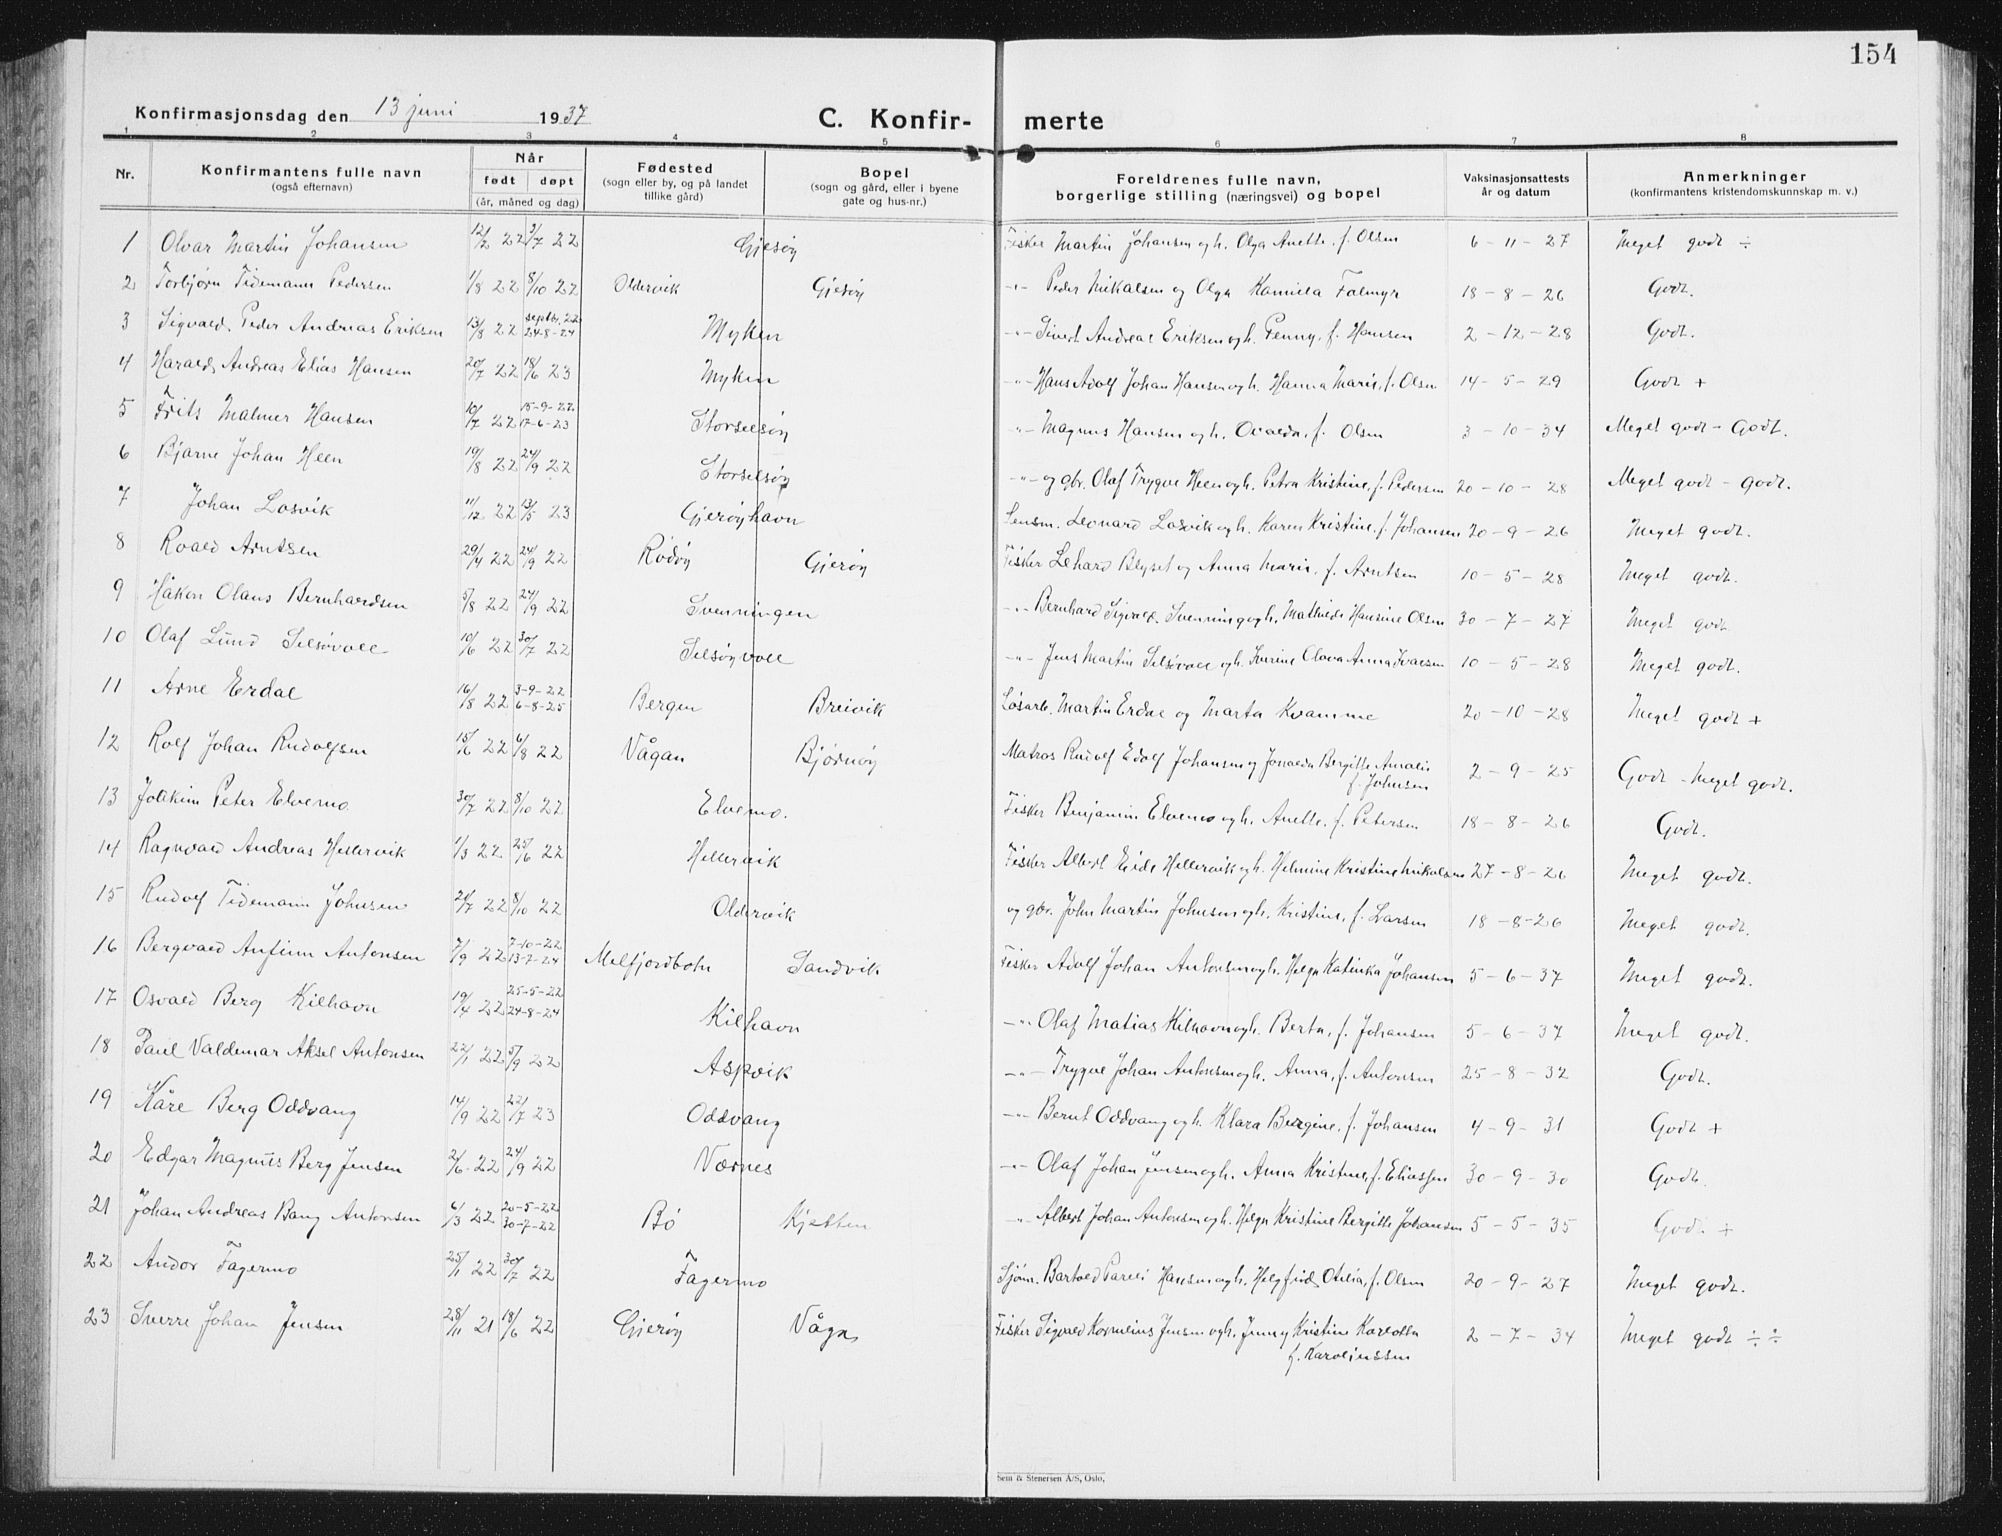 154
Konfirmasjonsdag den 13 juni 1937
C. Konfir- merte
1 2 3 4 5 6 7 8
Nr.
Konfirmantens fulle navn (også efternavn)
Når
født døpt
(år, måned og dag)
Fødested (sogn eller by, og på landet tillike gård)
Bopel (sogn og gård, eller i byene gate og hus-nr.)
Foreldrenes fulle navn, borgerlige stilling (næringsvei) og bopel
Vaksinasjonsattests år og datum
Anmerkninger (konfirmantens kristendomskunnskap m. v.)
1 Olvar Martin Johansen 12/2 22 2/7 22 Gjesøy Fisker Martin Johansen og h. Olga Anette, f. Olsen 6-11-27 Meget godt ÷
2 Torbjørn Tidemann Pedersen 1/8 22 8/10 22 Oldervik Gjesøy -"- Peder Mikalsen og Olga Kamilla Falmyr 18-8-26 Godt.
3 Sigvald Peder Andreas Eriksen 13/8 22 septbr. 22 24-8-24 Myken -"- Sivert Andreas Eriksen og h. Penny, f. Hansen 2-12-28 Godt.
4 Harald Andreas Elias Hansen 20/7 22 18/6 23 Myken -"- Hans Adolf Johan Hansen og h. Hanna Marie, f. Olsen 14-5-29 Godt +
5 Frits Malmer Hansen 10/7 22 15-9-22 17-6-23 Storselsøy -"- Magnus Hansen og h. Ovalda, f. Olsen 3-10-34 Meget godt - Godt.
6 Bjarne Johan Heen 19/8 22 24/9 22 Storselsøy -"- og gbr. Olaf Trygve Heen og h. Petra Kristine, f. Pedersen 20-10-28 Meget godt - godt.
7 Johan Losvik 11/12 22 13/5 23 Gjerøyhavn Lensm. Leonard Losvik og h. Karen Kristine, f. Johansen 20-9-26 Meget godt.
8 Roald Arntsen 29/4 22 24/9 22 Rødøy Gjerøy Fisker Lehard Blyset og Anna Marie, f. Arntsen 10-5-28 Meget godt.
9 Håkon Olaus Bernhardsen 5/8 22 24/9 22 Svenningen -"- Bernhard Sigvald Svenning og h. Mathilde Hansine Olsen 30-7-27 Meget godt
10 Olaf Lund Selsøvoll 10/6 22 30/7 22 Selsøyvoll -"- Jens Martin Selsøvoll og h. Iverine Olava Anna Ivarsen 10-5-28 Meget godt.
11 Arne Erdal 16/8 22 3-9-22 6-8-25 Bergen Breivik Løsarb. Martin Erdal og Marta Kvamme 20-10-28 Meget godt +
12 Rolf Johan Rudolfsen 15/6 22 6/8 22 Vågan Bjørnøy Matros Rudolf Edolf Johansen og Jonalda Bergitte Amalie
f. Johnsen 2-9-25 Godt - Meget godt.
13 Joakim Peter Elvemo 30/7 22 8/10 22 Elvemo. Fisker Benjamin Elvemo og h. Anette, f. Petersen 18-8-26 Godt.
14 Ragnvald Andreas Hellervik 1/3 22 25/6 22 Hellervik Fisker Albert Eide Hellervik og h. Helmine Kristine Mikalsen 27-8-26 Meget godt.
15 Rudolf Tidemann Johnsen 21/7 22 8/10 22 Oldervik og gbr. John Martin Johnsen og h. Kristine, f. Larsen 18-8-26 Meget godt.
16 Bergvald Anfinn Antonsen 7/9 22 7-10-22 13-7-24 Melfjordbotn Sandvik Fisker Adolf Johan Antonsen og h. Helga Katinka Johansen 5-6-37 Meget godt.
17 Osvald Berg Kilhavn 19/4 22 25-5-22 24-8-24 Kilhavn -"- Olaf Matias Kilhavn og h. Berta, f. Johansen 5-6-37 Meget godt.
18 Paul Valdemar Aksel Antonsen 22/1 22 5/9 22 Aspvik -"- Trygve Johan Antonsen og h. Anna, f. Antonsen 25-8-32 Godt.
19 Kåre Berg Oddvang 14/9 22 22/7 23 Oddvang -"- Bernt Oddvang og h. Klara Bergine, f. Johansen 4-9-31 Godt +
20 Edgar Magnus Berg Jensen 2/6 22 24/9 22 Værnes -"- Olaf Johan Jensen og h. Anna Kristine, f. Eliassen 30-9-30 Godt.
21 Johan Andreas Bang Antonsen 6/3 22 20-5-22 30-7-22 Bø Kjetten -"- Albert Johan Antonsen og h. Helga Kristine Bergitte Johansen 5-5-35 Godt. +
22 Andor Fagermo 25/1 22 30/7 22 Fagermo Sjøm. Bartold Pareli Hansen og h. Helgfrid Otelia, f. Olsen 20-9-27 Meget godt.
23 Sverre Johan Jensen 28/11 21 18/6 22 Gjerøy Våga Fisker Sigvald Kornelius Jensen og h. Jenny Kristine Karlotta
f. Karolinssen 2-7-34 Meget godt ÷ ÷
Sem & Stenersen A/S, Oslo,